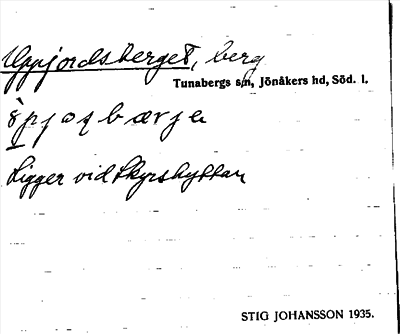 Uppjordsberget, berg
Tunabergs sn, Jönåkers hd, Söd. l.
Ligger vid Skyrshyttan
STIG JOHANSSON 1935.